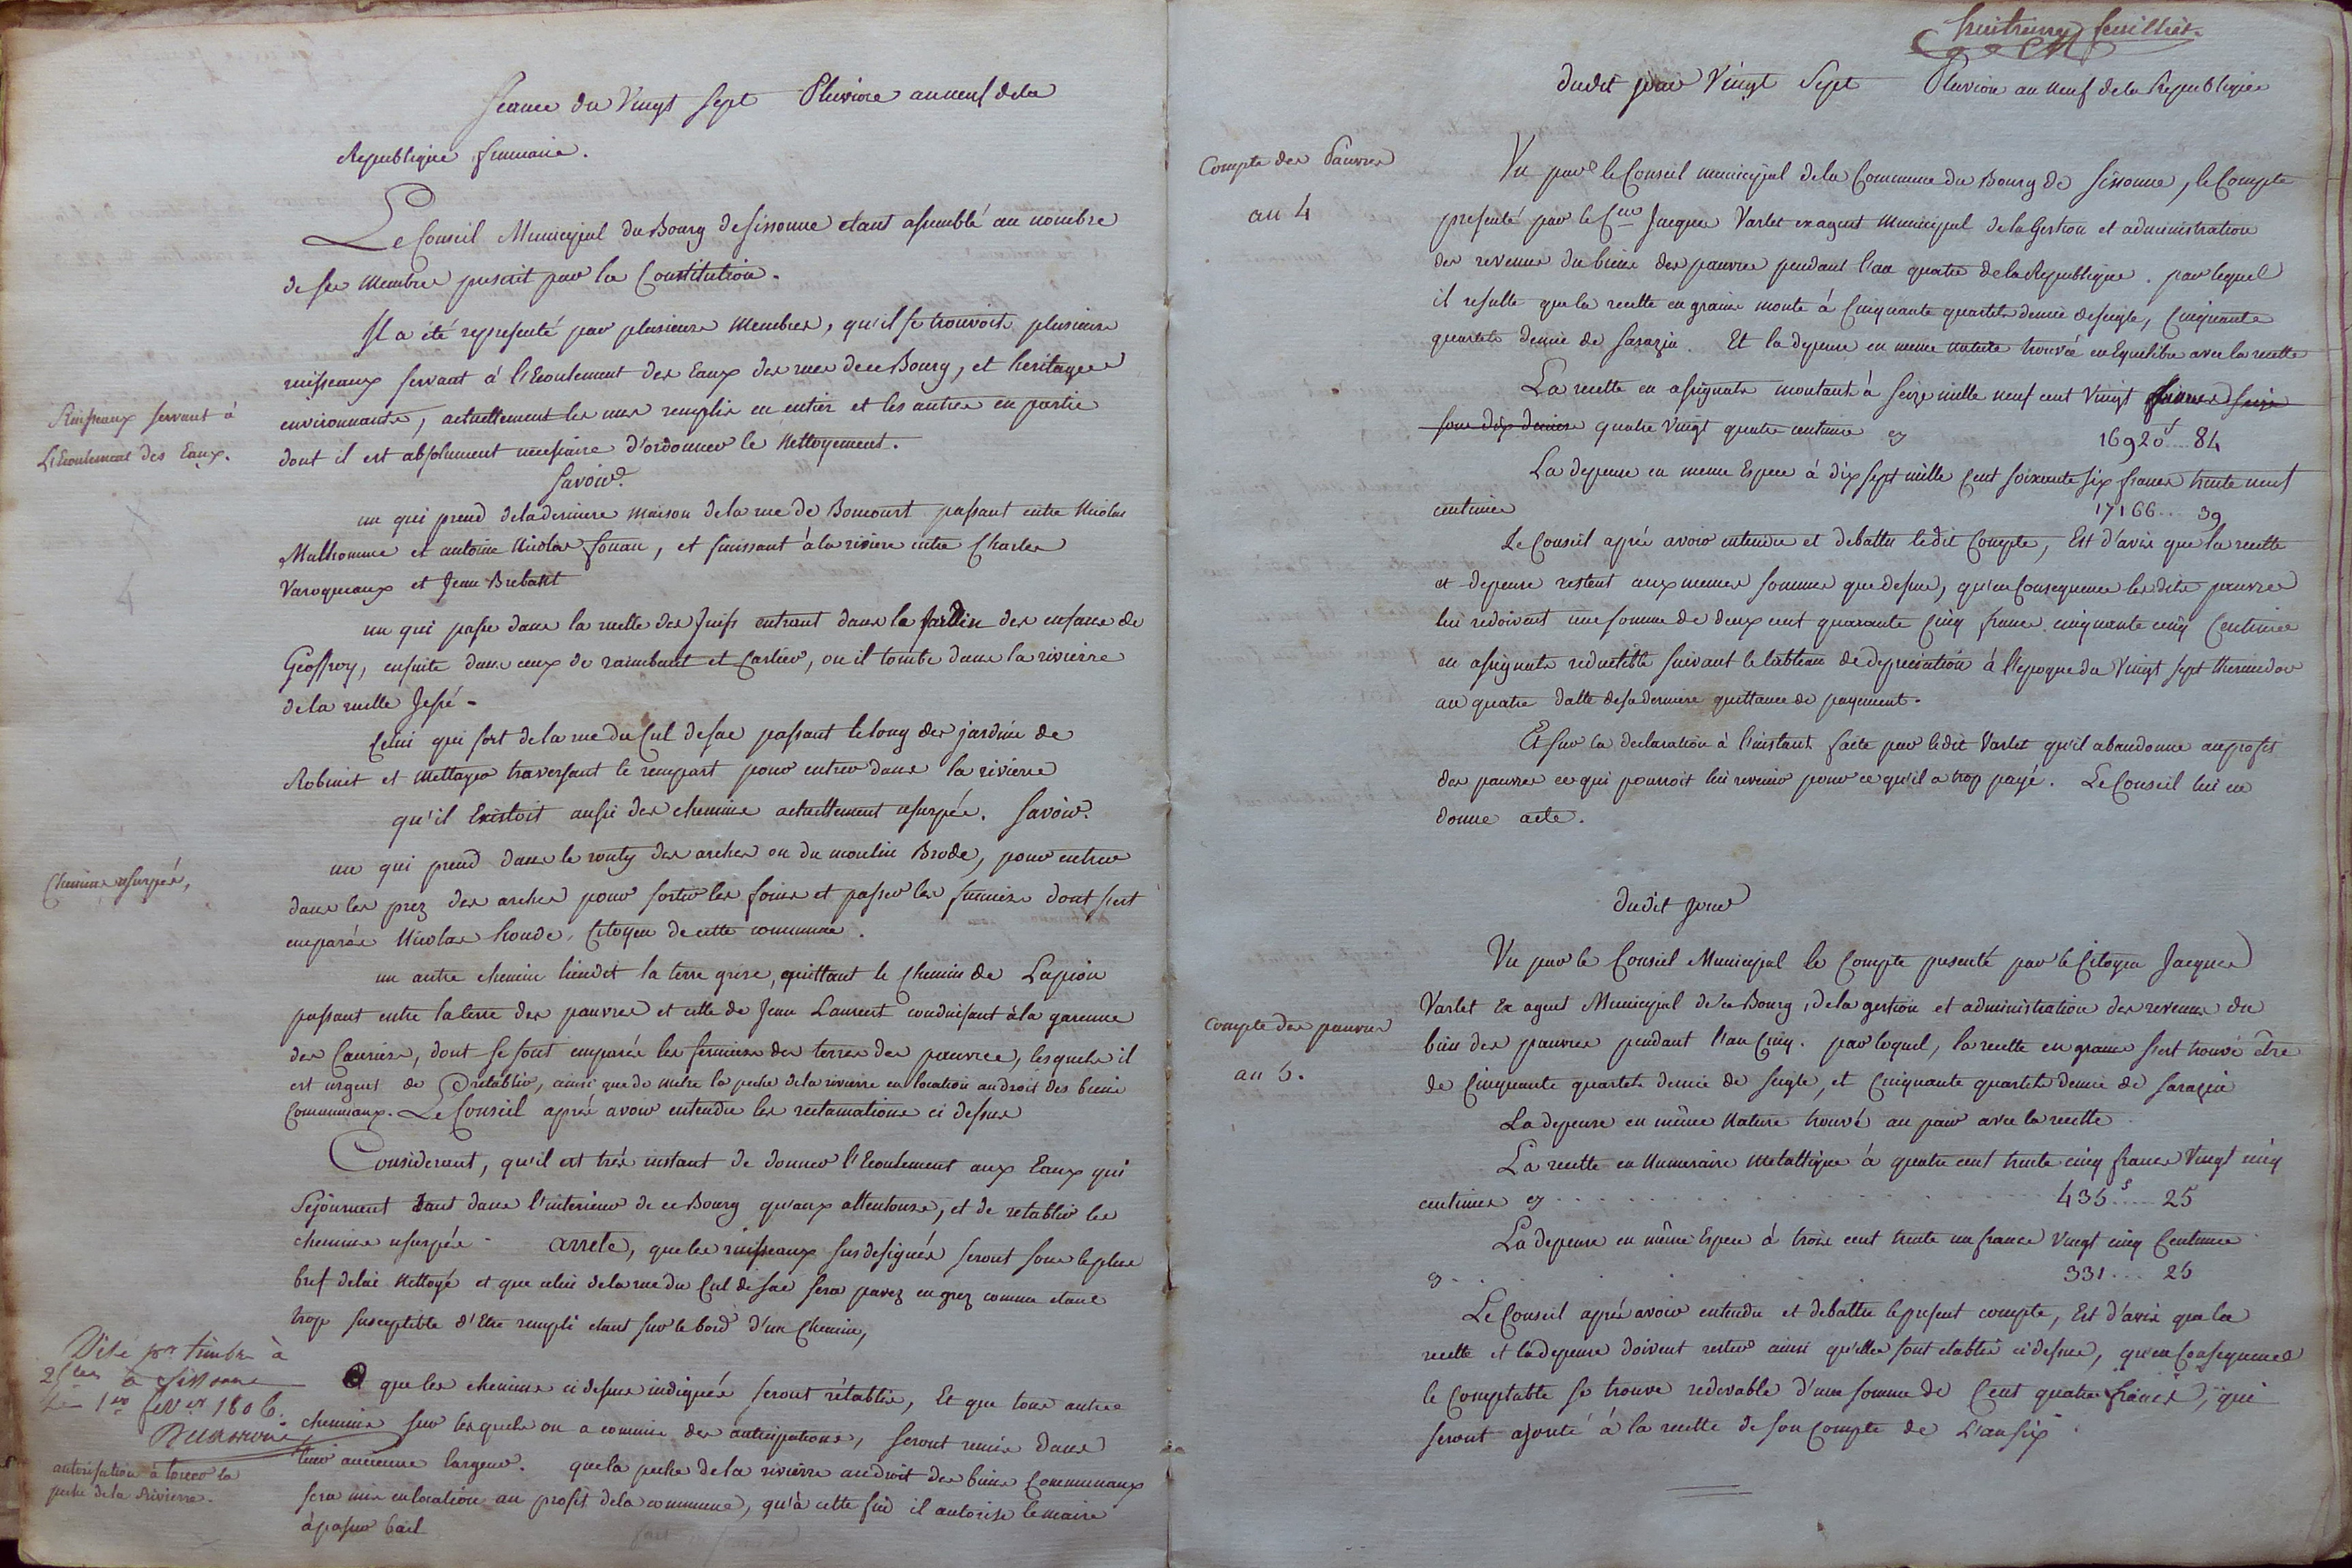 Seance du Vingt Sept Pluviose an neuf de la
Republique francaise.
Le Conseil Municipal du Bourg de Sissonne etant assemblé au nombre
de ses Membres prescrit par la Constitution.
Il a été representé par plusieurs Membres, qu'il se trouvoit plusieurs
ruisseaux servant á l'Ecoulement des Eaux des rues de ce Bourg, et heritages
environnants, actuellement les uns remplis en entier et les autres en partie
dont il est absolument necessaire d'ordonner le Nettoyement.
Ruisseaux servant á
L'Ecoulement des Eaux.
Savoir.
un qui prend de la derniere maison de la rue de Boncourt passant entre Nicolas
Malhomme et antoine Nicolas fouan, et finissant á la riviere entre Charles
Varoqueaux et Jean Brebant
4
un qui passe dans la ruelle des Juifs entrant dans le Jardin des enfans de
Geoffroy, ensuite dans ceux de raimbaut et Cartier, ou il tombe dans la rivierre
de la ruelle Jessé -
Celui qui sort de la rue du Cul de sac passant le long des jardins de
Robinet et Mettayer traversant le rempart pour entrer dans la riviere
qu'il Existoit aussi des chemins actuellement usurpés. Savoir.
Chemins usurpés,
un qui prend dans le routy des arches ou du moulin Brode, pour entrer
dans les prez des arches pour sortir les foins et passer les fumiers dont s'est
emparés Nicolas houde, Citoyen de cette commune.
un autre chemin lieudit la terre grise, quittant le chemin de Lapion
passant entre la terre des pauvres et celle de Jean Laurent conduisant à la garenne
des Cauriers, dont se sont emparés les fermiers des terres des pauvres, lesquels il
est urgent de rétablir, ainsi que de metre la peche de la rivierre en location au droit des biens
Communaux. Le Conseil aprés avoir entendu les reclamations ci dessus
Considerant, qu'il est trés instant de donner l'Ecoulement aux Eaux qui
Sejournent tant dans l'interieur de ce Bourg qu'aux allentours, et de retablir les
chemins usurpés - arrete, que les ruisseaux susdesignés seront sous le plus
bref delai Nettoyé et que celui de la rue du Cul de sac sera pavez en grez comme etant
trop susceptible d'Etre rempli etant sur le bord d'un Chemin,
Visé pr. timbre à
à Sissonne
le 1er fevrer 1806.
que les chemins ci dessus indiqués seront rétablis, Et que tous autres
chemins sur lesquels on a commis des anticipations, seront remis dans
leur ancienne largeur. que la peche de la rivierre au droit des biens Communaux
sera mis en location au profit de la commune, qu'à cette fin il autorise le maire
à passer bail
autorisation à louer la
peche de la Rivierre.
feuillet.
dudit jour Vingt Sept Pluviose an Neuf de la Republique
Compte des Pauvres
an 4
Vu par le Conseil municipal de la Commune du Bourg de Sissonne, le Compte
presenté par le Cen Jacques Varlet ex agent Municipal de la Gestion et administration
des revenus du bien des pauvres pendant l'an quatre de la Republique. par lequel
il resulte que la recette en grains monte á Cinquante quartels demie de seigle, Cinquante
quartels demie de Sarazin. Et la depense en meme nature trouvée en Equilibre avec la recette
La recette en assignats montant à Seize mille neuf cent Vingt francs seize
sous dix deniers quatre vingt quatre centimes cy 16920f....84
La depense en meme Espece á dix sept mille cent soixante six francs trente neuf
centimes 17166....39
Le Conseil aprés avoir entendu et debattu ledit Compte, Est d'avis que la recette
et depense restent aux memes sommes que dessus, qu'en Consequence les dits pauvres
lui redoivent une somme de deux cent quarante Cinq francs cinquante cinq Centimes
en assignats reductible suivant le tableau de depreciation á l'epoque du Vingt sept thermidor
an quatre datte de sa derniere quittance de payement.
Et sur la declaration à l'instant faite par ledit Varlet qu'il abandonne au profit
des pauvres ce qui pourroit lui revenir pour ce qu'il a trop payé. Le Conseil lui en
donne acte.
dudit jour
Compte des pauvres
an 5.
Vu par le Conseil Municipal le Compte presenté par le Citoyen Jacques
Varlet Ex agent Municipal de ce Bourg, de la gestion et administration des revenus du
bien des pauvres pendant l'an Cinq. par lequel, la recette en grains s'est trouvé être
de Cinquante quartels demie de Seigle, et Cinquante quartels demie de Sarazin
La depense en même Nature trouvé au pair avec la recette.
La recette en Numeraire Metallique à quatre cent trente cinq francs Vingt cinq
centimes cy 435f....25
La depense en même Espece à trois cent trente un francs Vingt cinq Centimes
cy 331....25
Le Conseil aprés avoir entendu et debattu le present compte, Est d'avis que la
recette et la depense doivent rester ainsi qu'elles sont etablis ci dessus, qu'en Consequence
le Comptable se trouve redevable d'une somme de Cent quatre francs, qui
seront ajouté á la recette de son Compte de L'an six